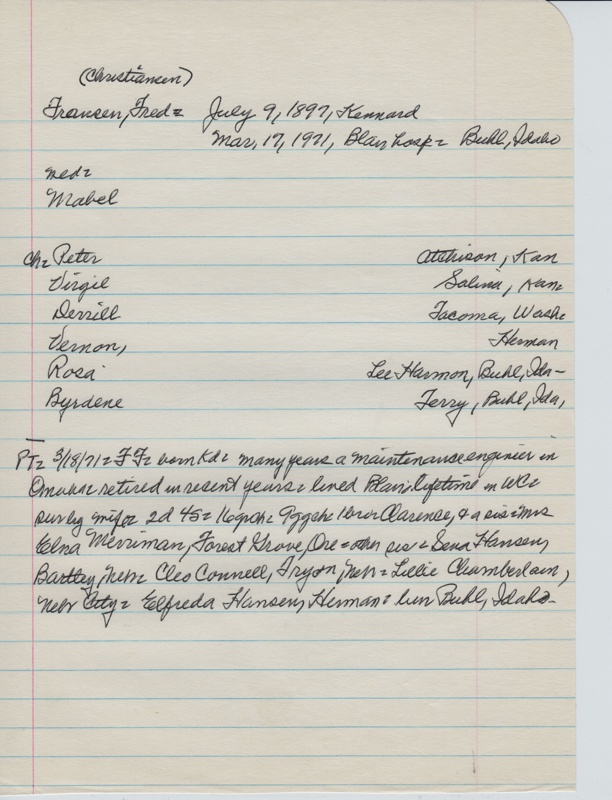 (Christiansen)
Fransen, Fred= July 9, 1897, Kennard
Mar, 17, 1971, Blair hosp= Buhl, Idaho
med=
Mabel
ch= Peter Atchison, Kan
Virgil Salina, Kan=
Derrill Tacoma, Wash=
Vernon, Herman
Rosa Lee Harmon, Buhl, Ida-
Byrdene Terry, Buhl, Ida,
PT= 3/18/71= FF= born Kd= many years a maintenance enginier in
Omaha= retired in resent years= lived Blair= lifetime in WC=
sur by wife= 2d 4S= 16grch= 9ggch= 1bror Clarense, & a sis=mrs
Elna Merriman, Forest Grove, Ore= other sis= Sena Hansen,
Bartley, Nebr= Cleo Connell, Tryon, Nebr= Lillie Chamberlain,
Nebr City= Elfreda Hansen, Herman= bur Buhl, Idaho-